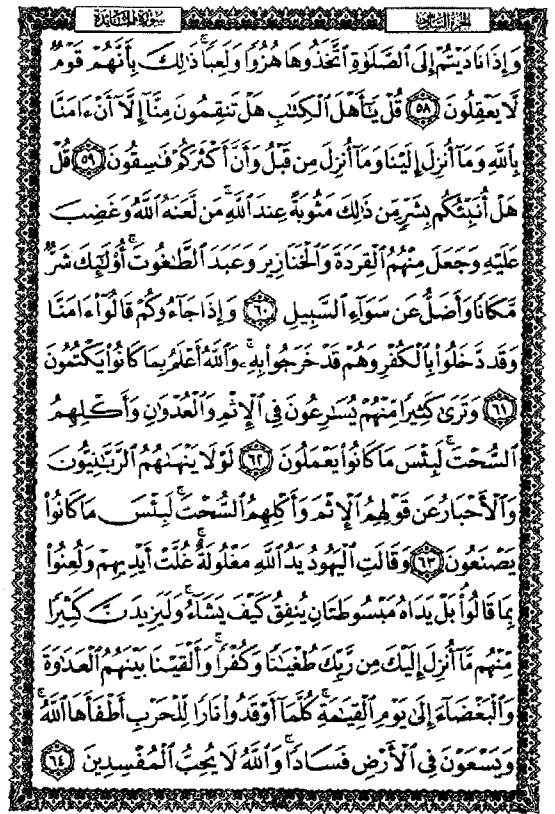 سورة المائدة الجزء السادس
وَإِذَا نَادَيْتُمْ إِلَى ٱلصَّلَوٰةِ ٱتَّخَذُوهَا هُزُوًا وَلَعِبًا ۚ ذَٰلِكَ بِأَنَّهُمْ قَوْمٌ
لَّا يَعْقِلُونَ ٥٨ قُلْ يَٰٓأَهْلَ ٱلْكِتَٰبِ هَلْ تَنقِمُونَ مِنَّآ إِلَّآ أَنْ ءَامَنَّا
بِٱللَّهِ وَمَآ أُنزِلَ إِلَيْنَا وَمَآ أُنزِلَ مِن قَبْلُ وَأَنَّ أَكْثَرَكُمْ فَٰسِقُونَ ٥٩ قُلْ
هَلْ أُنَبِّئُكُم بِشَرٍّ مِّن ذَٰلِكَ مَثُوبَةً عِندَ ٱللَّهِ ۚ مَن لَّعَنَهُ ٱللَّهُ وَغَضِبَ
عَلَيْهِ وَجَعَلَ مِنْهُمُ ٱلْقِرَدَةَ وَٱلْخَنَازِيرَ وَعَبَدَ ٱلطَّٰغُوتَ ۚ أُو۟لَٰٓئِكَ شَرٌّ
مَّكَانًا وَأَضَلُّ عَن سَوَآءِ ٱلسَّبِيلِ ٦٠ وَإِذَا جَآءُوكُمْ قَالُوٓا۟ ءَامَنَّا
وَقَد دَّخَلُوا۟ بِٱلْكُفْرِ وَهُمْ قَدْ خَرَجُوا۟ بِهِۦ ۚ وَٱللَّهُ أَعْلَمُ بِمَا كَانُوا۟ يَكْتُمُونَ
٦١ وَتَرَىٰ كَثِيرًا مِّنْهُمْ يُسَٰرِعُونَ فِى ٱلْإِثْمِ وَٱلْعُدْوَٰنِ وَأَكْلِهِمُ
ٱلسُّحْتَ ۚ لَبِئْسَ مَا كَانُوا۟ يَعْمَلُونَ ٦٢ لَوْلَا يَنْهَىٰهُمُ ٱلرَّبَّٰنِيُّونَ
وَٱلْأَحْبَارُ عَن قَوْلِهِمُ ٱلْإِثْمَ وَأَكْلِهِمُ ٱلسُّحْتَ ۚ لَبِئْسَ مَا كَانُوا۟
يَصْنَعُونَ ٦٣ وَقَالَتِ ٱلْيَهُودُ يَدُ ٱللَّهِ مَغْلُولَةٌ ۚ غُلَّتْ أَيْدِيهِمْ وَلُعِنُوا۟
بِمَا قَالُوا۟ ۘ بَلْ يَدَاهُ مَبْسُوطَتَانِ يُنفِقُ كَيْفَ يَشَآءُ ۚ وَلَيَزِيدَنَّ كَثِيرًا
مِّنْهُم مَّآ أُنزِلَ إِلَيْكَ مِن رَّبِّكَ طُغْيَٰنًا وَكُفْرًا ۚ وَأَلْقَيْنَا بَيْنَهُمُ ٱلْعَدَٰوَةَ
وَٱلْبَغْضَآءَ إِلَىٰ يَوْمِ ٱلْقِيَٰمَةِ ۚ كُلَّمَآ أَوْقَدُوا۟ نَارًا لِّلْحَرْبِ أَطْفَأَهَا ٱللَّهُ ۚ
وَيَسْعَوْنَ فِى ٱلْأَرْضِ فَسَادًا ۚ وَٱللَّهُ لَا يُحِبُّ ٱلْمُفْسِدِينَ ٦٤